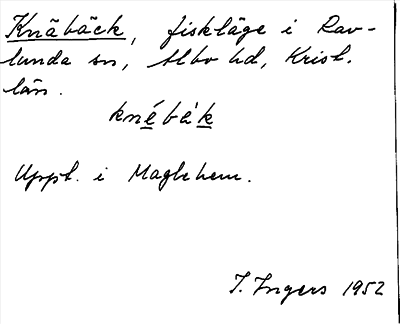 Knäbäck, fiskläge i Rav-
lunda sn, Albo hd, Krist.
län.
knébåk
Uppt. i Maglehem.
I. Ingers 1952